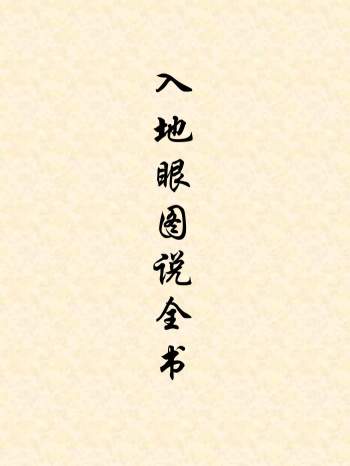 入地眼图说全书